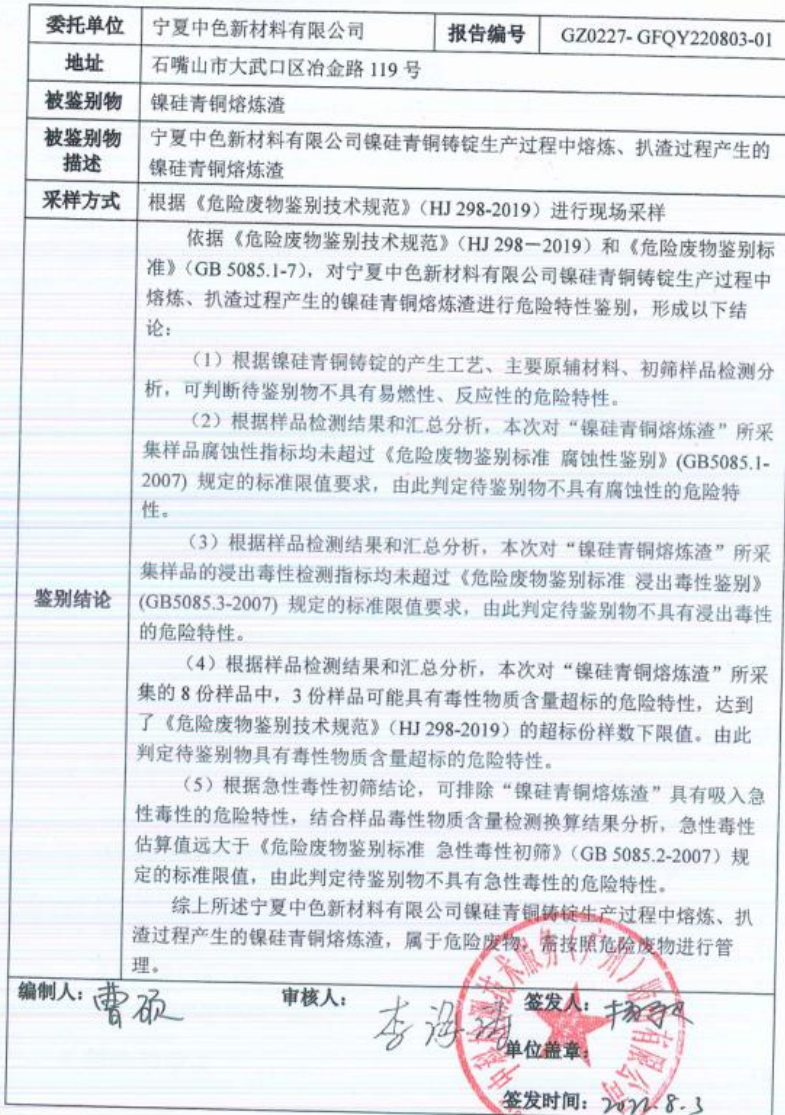 委托单位 宁夏中色新材料有限公司 报告编号 GZ0227- GFQY220803-01
地址 石嘴山市大武口区冶金路 119 号
被鉴别物 镍硅青铜熔炼渣
被鉴别物描述 宁夏中色新材料有限公司镍硅青铜铸锭生产过程中熔炼、扒渣过程产生的
镍硅青铜熔炼渣
采样方式 根据《危险废物鉴别技术规范》（HJ 298-2019）进行现场采样
鉴别结论
依据《危险废物鉴别技术规范》（HJ 298－2019）和《危险废物鉴别标
准》（GB 5085.1-7），对宁夏中色新材料有限公司镍硅青铜铸锭生产过程中
熔炼、扒渣过程产生的镍硅青铜熔炼渣进行危险特性鉴别，形成以下结
论：
（1）根据镍硅青铜铸锭的产生工艺、主要原辅材料、初筛样品检测分
析，可判断待鉴别物不具有易燃性、反应性的危险特性。
（2）根据样品检测结果和汇总分析，本次对“镍硅青铜熔炼渣”所采
集样品腐蚀性指标均未超过《危险废物鉴别标准 腐蚀性鉴别》(GB5085.1-
2007) 规定的标准限值要求，由此判定待鉴别物不具有腐蚀性的危险特
性。
（3）根据样品检测结果和汇总分析，本次对“镍硅青铜熔炼渣”所采
集样品的浸出毒性检测指标均未超过《危险废物鉴别标准 浸出毒性鉴别》
(GB5085.3-2007) 规定的标准限值要求，由此判定待鉴别物不具有浸出毒性
的危险特性。
（4）根据样品检测结果和汇总分析，本次对“镍硅青铜熔炼渣”所采
集的 8 份样品中，3 份样品可能具有毒性物质含量超标的危险特性，达到
了《危险废物鉴别技术规范》（HJ 298-2019）的超标份样数下限值。由此
判定待鉴别物具有毒性物质含量超标的危险特性。
（5）根据急性毒性初筛结论，可排除“镍硅青铜熔炼渣”具有吸入急
性毒性的危险特性，结合样品毒性物质含量检测换算结果分析，急性毒性
估算值远大于《危险废物鉴别标准 急性毒性初筛》（GB 5085.2-2007）规
定的标准限值，由此判定待鉴别物不具有急性毒性的危险特性。
综上所述宁夏中色新材料有限公司镍硅青铜铸锭生产过程中熔炼、扒
渣过程产生的镍硅青铜熔炼渣，属于危险废物，需按照危险废物进行管
理。
编制人：曹硕 审核人：李海涛 签发人：
单位盖章：
签发时间：2022.8.3